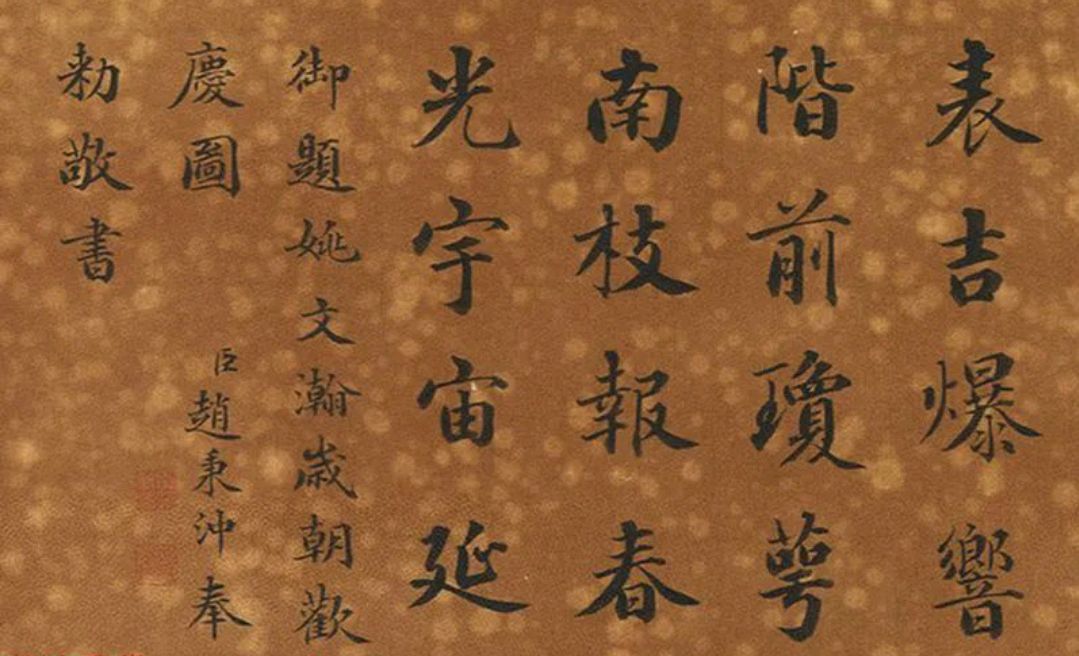 表吉爆響
階前瓊萼
南枝報春
光宇宙延
御題姚文瀚歲朝歡
慶圖
臣趙秉沖奉
敕敬書